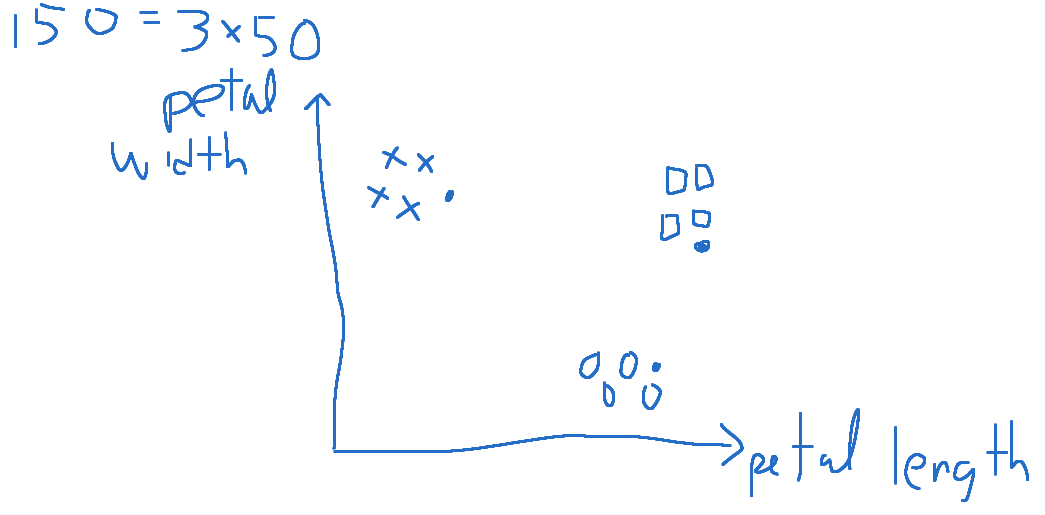 150 = 3 x 50
petal
width
petal length